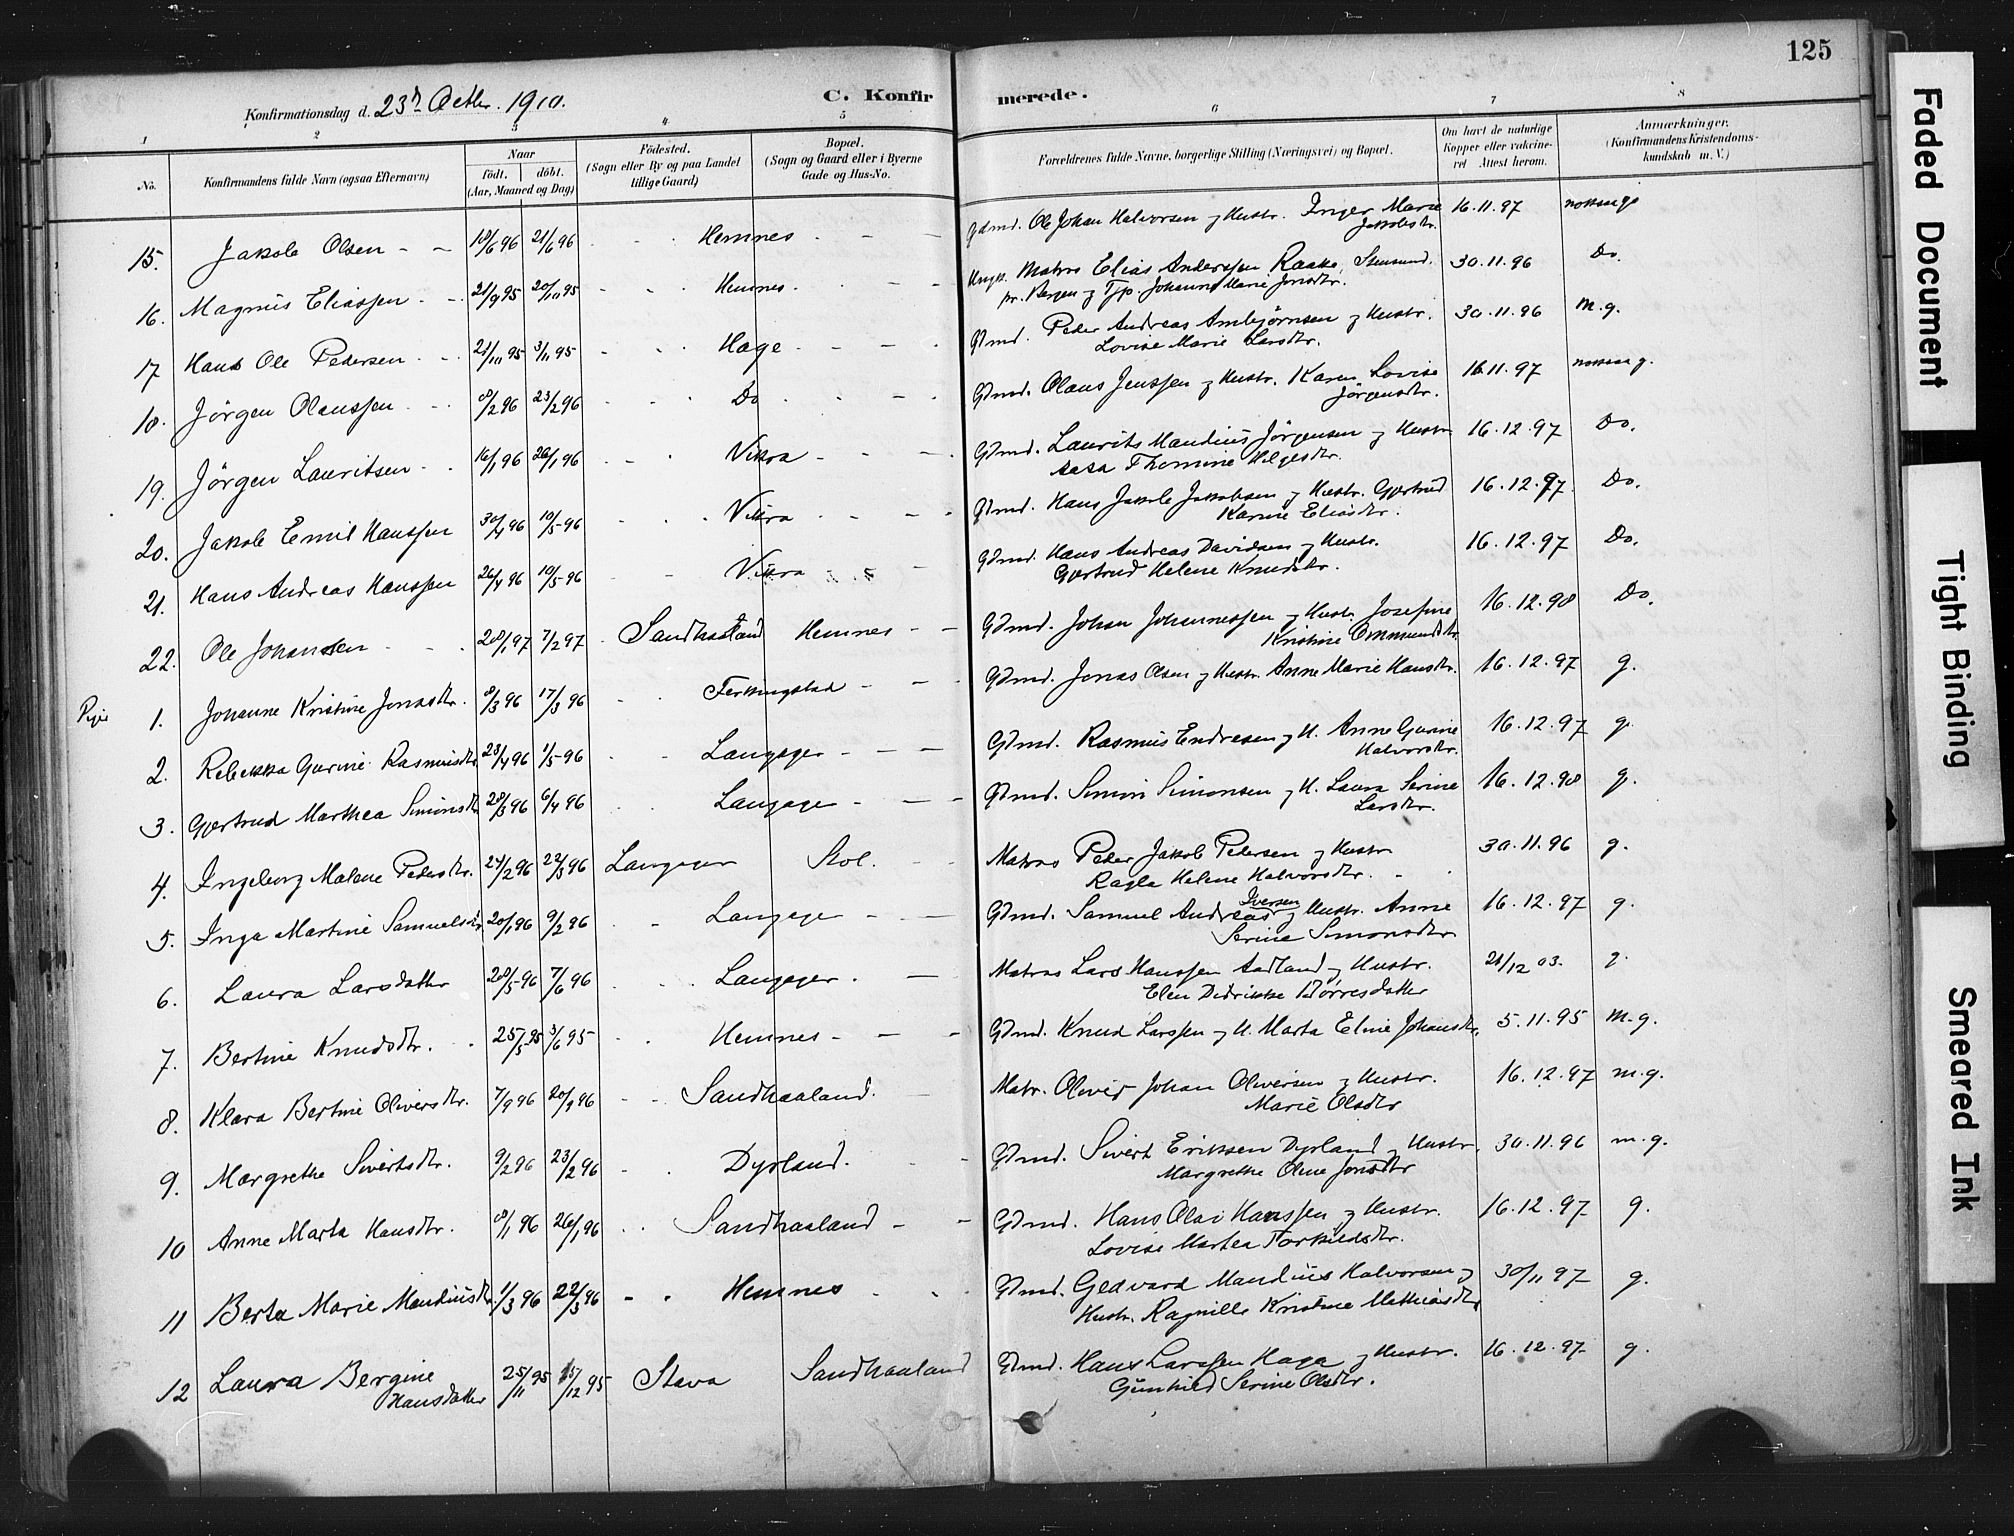 125
Konfirmationsdag d. 23d Octbr. 1910.
C. Konfirmerede.
1 2 3 4 5 6 7 8
No. Konfirmandens fulde Navn (ogsaa Efternavn) Naar födt. döbt. (Aar, Maaned og Dag) Födested. (Sogn eller By og paa Landet tillige Gaard) Bopæl. (Sogn og Gaard eller i Byerne Gade og Hus-No. Forældrenes fulde Navne, borgerlige Stilling (Næringsvei) og Bopæl. Om havt de naturlige Kopper eller vakcineret Attest herom. Anmærkninger. (Konfirmandens Kristendomskundskab m. V.)
15. Jakob Olsen - - 18/6 96 21/6 96 Hemnes - - Gdmd. Ole Johan Halvorsen og Hustr. Inger Marie 16.11.97
Jakobsdtr.
16. Magnus Eliassen - 21/9 95 20/10 95 Hemnes. - - Ungk. Matros Elias Anderssen Raake, Stensund. 30.11.96 Do.
pr. Bergen og Tjp. Johanne Marie Jonsdtr.
17 Hans Ole Pedersen - 21/10 95 3/11 95 Hage - - Gdmd. Peder Andreas Ambjørnsen og Hustr. 30.11.96 m.g.
Lovise Marie Larsdtr.
18. Jörgen Olaussen - 8/2 96 23/2 96 Do - Gdmd. Olaus Jenssen og Hustr. Karen Lovise 16.11.97
Jörgensdtr.
19. Jörgen Lauritsen - 16/1 96 26/1 96 Vikra - - Gdmd. Laurits Mandius Jörgensen og Hustr. 16.12.97 Do.
Aasa Thomine Helgesdtr.
20. Jakob Emil Hanssen 30/4 96 10/5 96 Vikra - - Gdmd. Hans Jakob Jakobsen og Hustr. Gjertrud 16.12.97 Do.
Karine Eliasdtr.
21. Hans Andreas Hanssen 26/4 96 10/5 96 Vikra - Gdmd. Hans Andreas Davidsen og Hustr. 16.12.97 Do.
Gjertrud Helene Knudsdtr.
22. Ole Johansen 28/1 97 7/2 97 Sandhaaland Hemnes - - Gdmd. Johan Johannessen og Hustr. Josefine 16.12.98 Do.
Kristine Ommundsdtr.
Piger 1. Johanne Kristine Jonasdtr. 8/3 96 17/3 96 Ferkingstad - - Gdmd. Jonas Olsen og Hustr. Anne Marie Hansdtr. 16.12.97 g.
2. Rebekka Gurine Rasmusdtr. 23/4 96 1/5 96 Langager - - - Gdmd. Rasmus Endresen og H. Anne Gurine 16.12.97 g.
Halvorsdtr.
3. Gjertrud Marthea Simonsdtr 28/3 96 6/4 96 Langager - - - Gdmd. Simon Simonsen og H. Laura Serine 16.12.98 g.
Larsdtr.
4. Ingeborg Malene Pedersdtr. 24/2 96 22/3 96 Langager Stol. - Matros Peder Jakob Pedersen og Hustr 30.11.96 g.
Ragla Helene Halvorsdtr.
5. Inga Martine Samuelsdtr 20/1 96 9/2 96 Langager - - Gdmd. Samuel Andreas Iversen og Hustr. Anne 16.12.97 g.
Serine Simonsdtr
6. Laura Larsdatter 28/5 96 7/6 96 Langager. - Matros Lars Hanssen Aadland og Hustr. 21/12 03. g.
Elen Didrikke Tørresdatter
7. Bertine Knudsdtr. 25/5 95 3/6 95 Hemnes - - Gdmd. Knud Larssen og H. Marta Eline Johansdtr. 5.11.95 m.g.
8. Klara Bertine Oliversdtr. 7/9 96 20/9 96 Sandhaaland. Matr. Oliver Johan Oliversen og Hustr. 16.12.97 m.g.
Marie Olsdtr
9. Margrethe Sivertsdtr. 9/2 96 23/2 96 Dyrland. Gdmd. Sivert Eriksen Dyrland og Hustr. 30.11.96 m.g.
Margrethe Oline Jonsdtr
10 Anne Marta Hansdtr. 8/1 96 26/1 96 Sandhaaland - - Gdmd. Hans Olai Hanssen og Hustr. 16.12.97 g.
Lovise Martea Torkildsdtr.
11 Berta Marie Mandiusdtr 1/3 96 22/3 96 Hemnes Gdmd. Gedvard Mandius Halvorsen og 30/11 97 g.
Hustr. Ragnille Kristine Mathiasdtr
12 Laura Bergine 25/11 95 15/12 95 Stava Sandhaaland Gdmd. Hans Larssen Haga og Hustr. 16.12.97 g.
Hansdatter Gunhild Serine Olsdtr.
Faded Document
Tight Binding
Smeared Ink